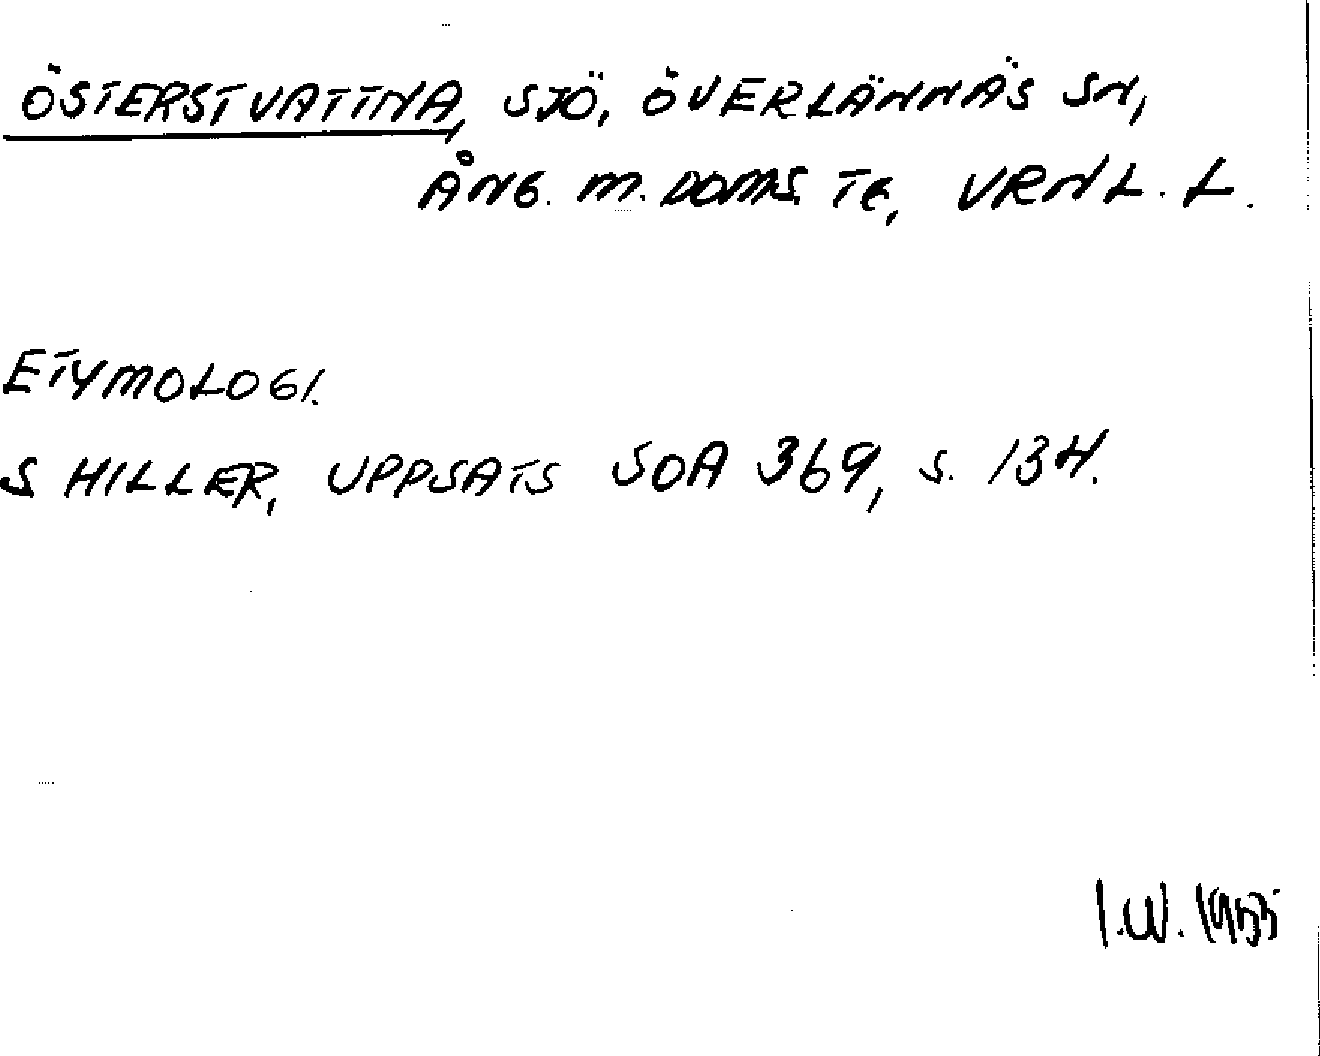 ÖSTERSTVATTNA, SJÖ, ÖVERLÄNNÄS SN,
ÅNG. M. DOMS. TG, VRNL. L.
ETYMOLOGI.
S HILLER, UPPSATS SOA 369, S. 134.
I.W. 1955